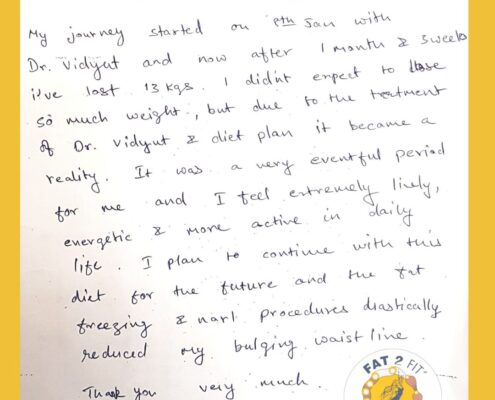 My journey started on 8th Jan with
Dr. Vidyut and now after 1 month & 3 weeks
i've lost 13 kgs. I didn't expect to lose
so much weight, but due to the treatment
of Dr. Vidyut & diet plan it became a
reality. It was a very eventful period
for me and I feel extremely lively,
energetic & more active in daily
life. I plan to continue with this
diet for the future and the fat
freezing & narl procedures drastically
reduced my bulging waistline.
Thank you very much.
FAT 2 FIT